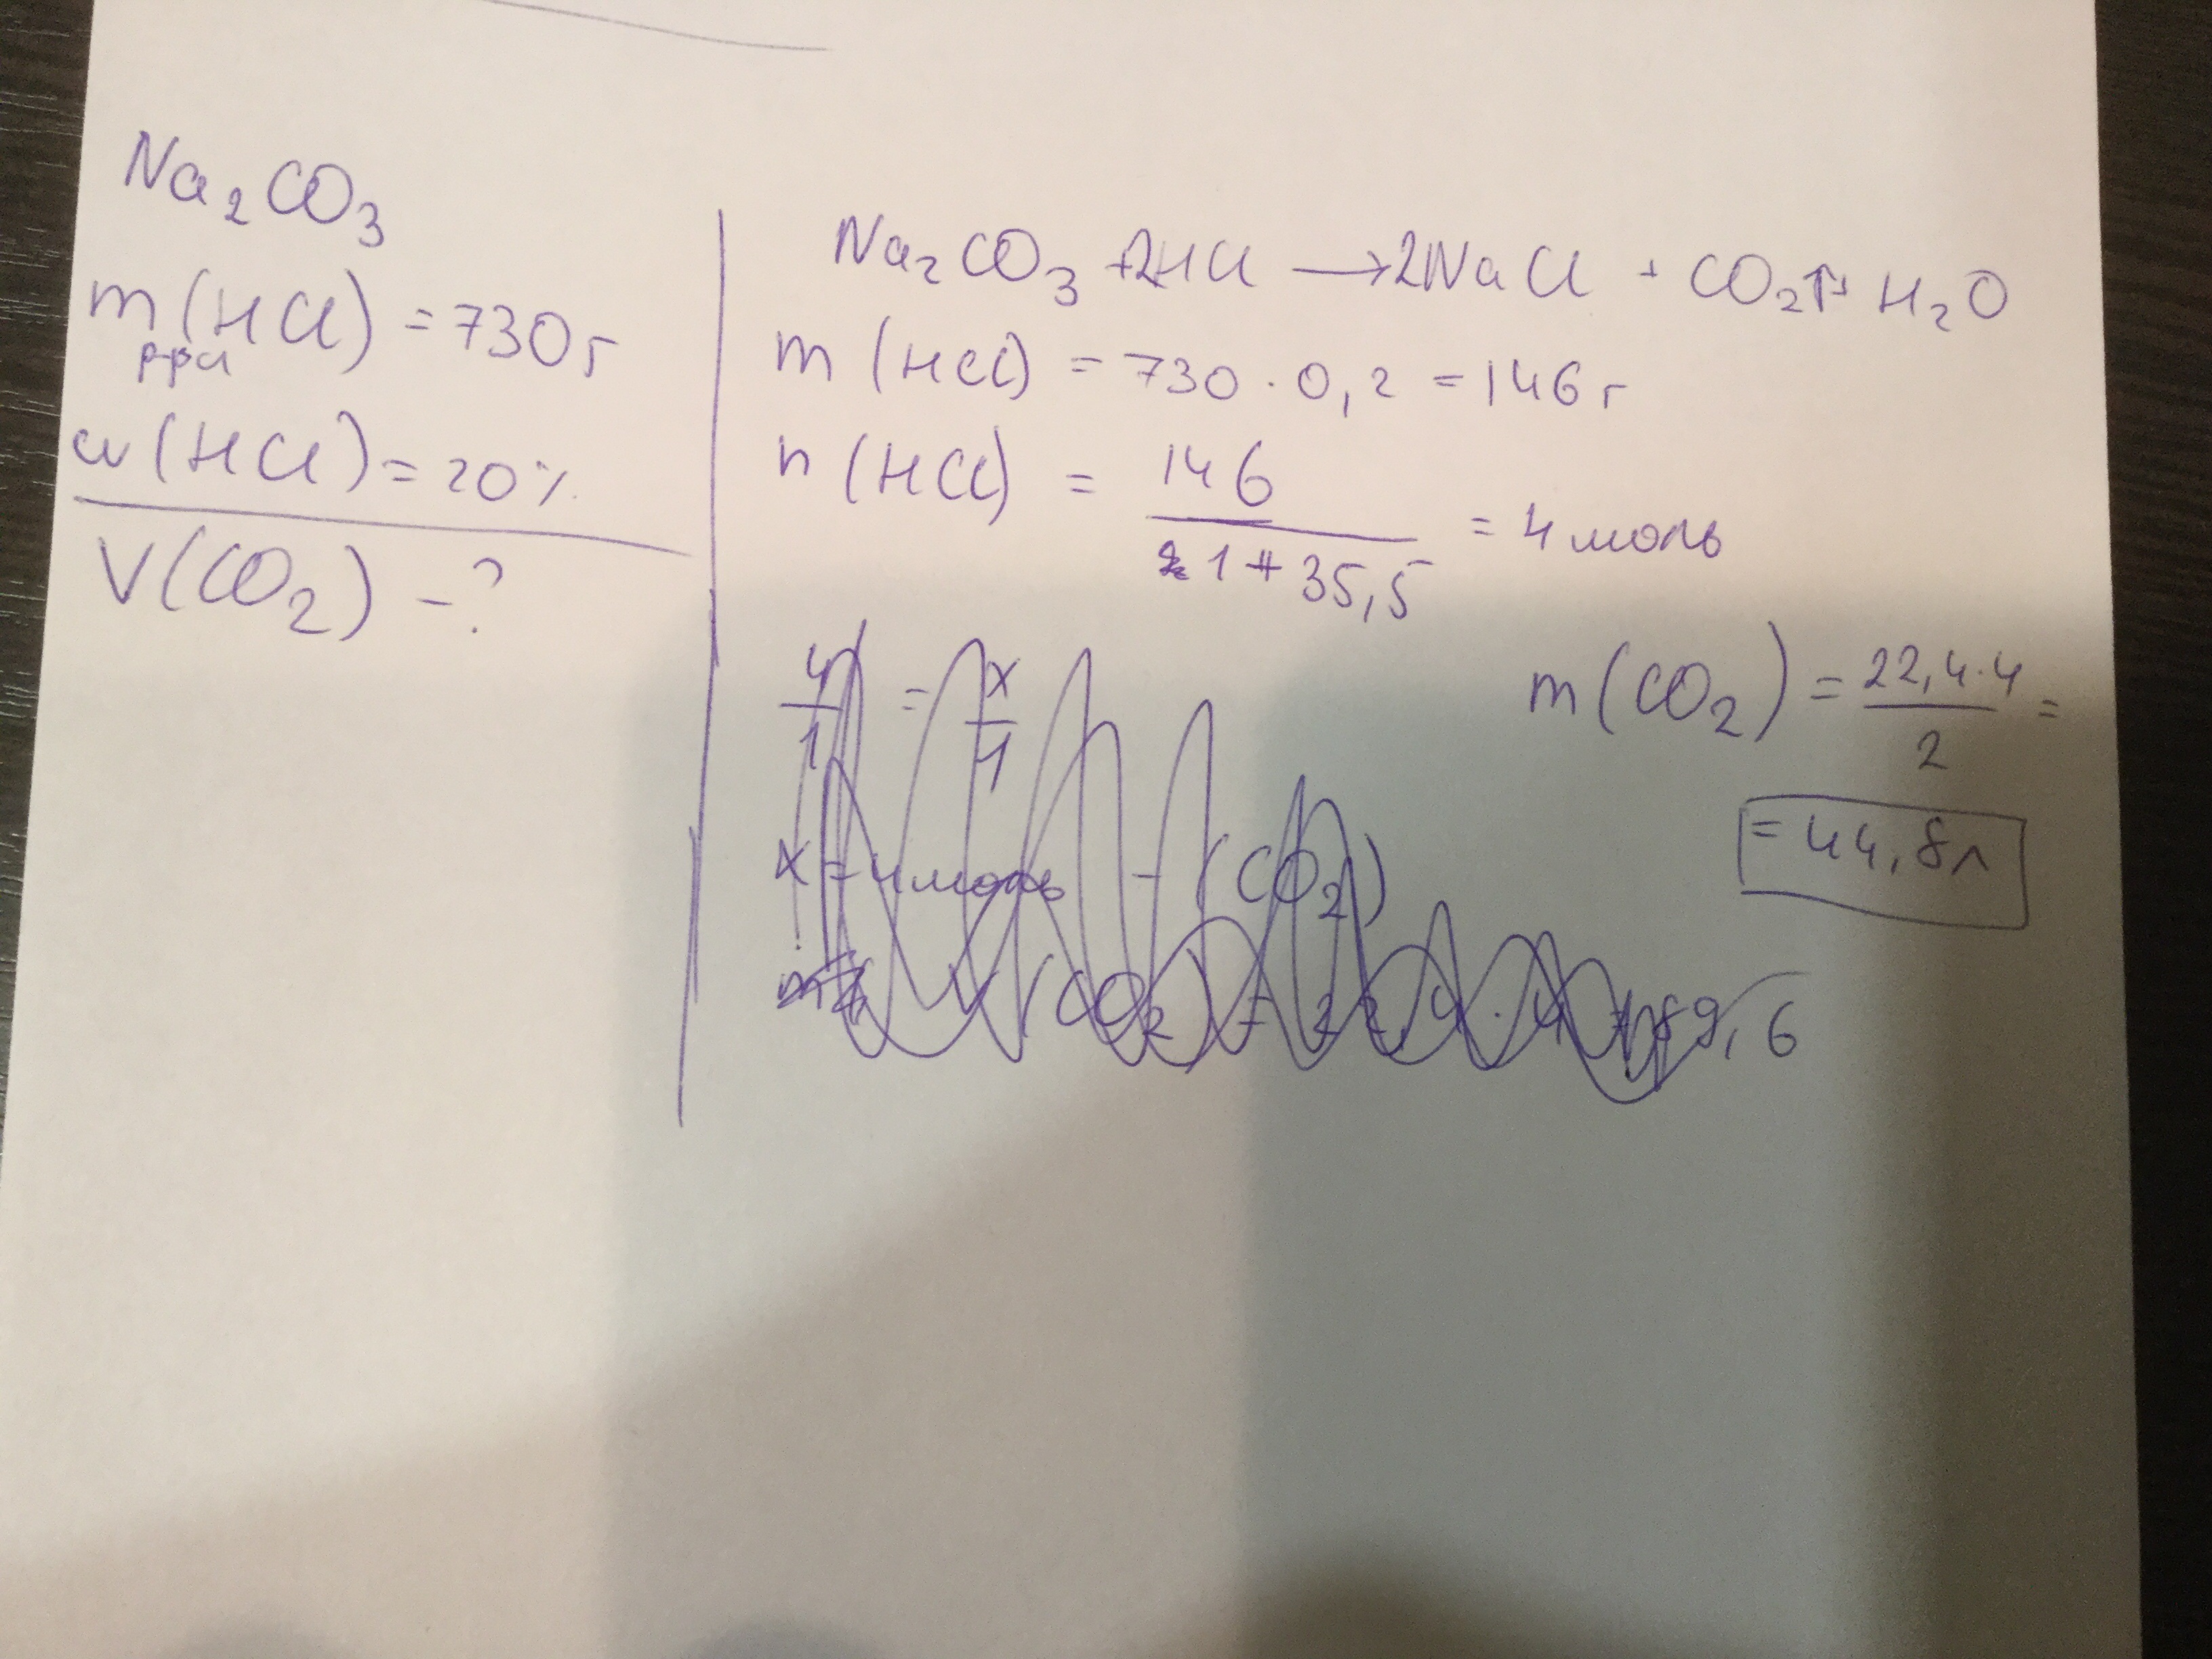 Na₂CO₃
m р-ра (HCl) = 730 г
w (HCl) = 20%
V(CO₂) - ?
Na₂CO₃ + 2HCl → 2NaCl + CO₂↑ + H₂O
m (HCl) = 730 · 0,2 = 146 г
n (HCl) = 146 / 1 + 35,5 = 4 моль
4/1 = x/1
x = 4 моль - (CO₂)
V (CO₂) = 22,4 · 4 = 89,6
m(CO₂) = 22,4·4 / 2 =
= 44,8 л